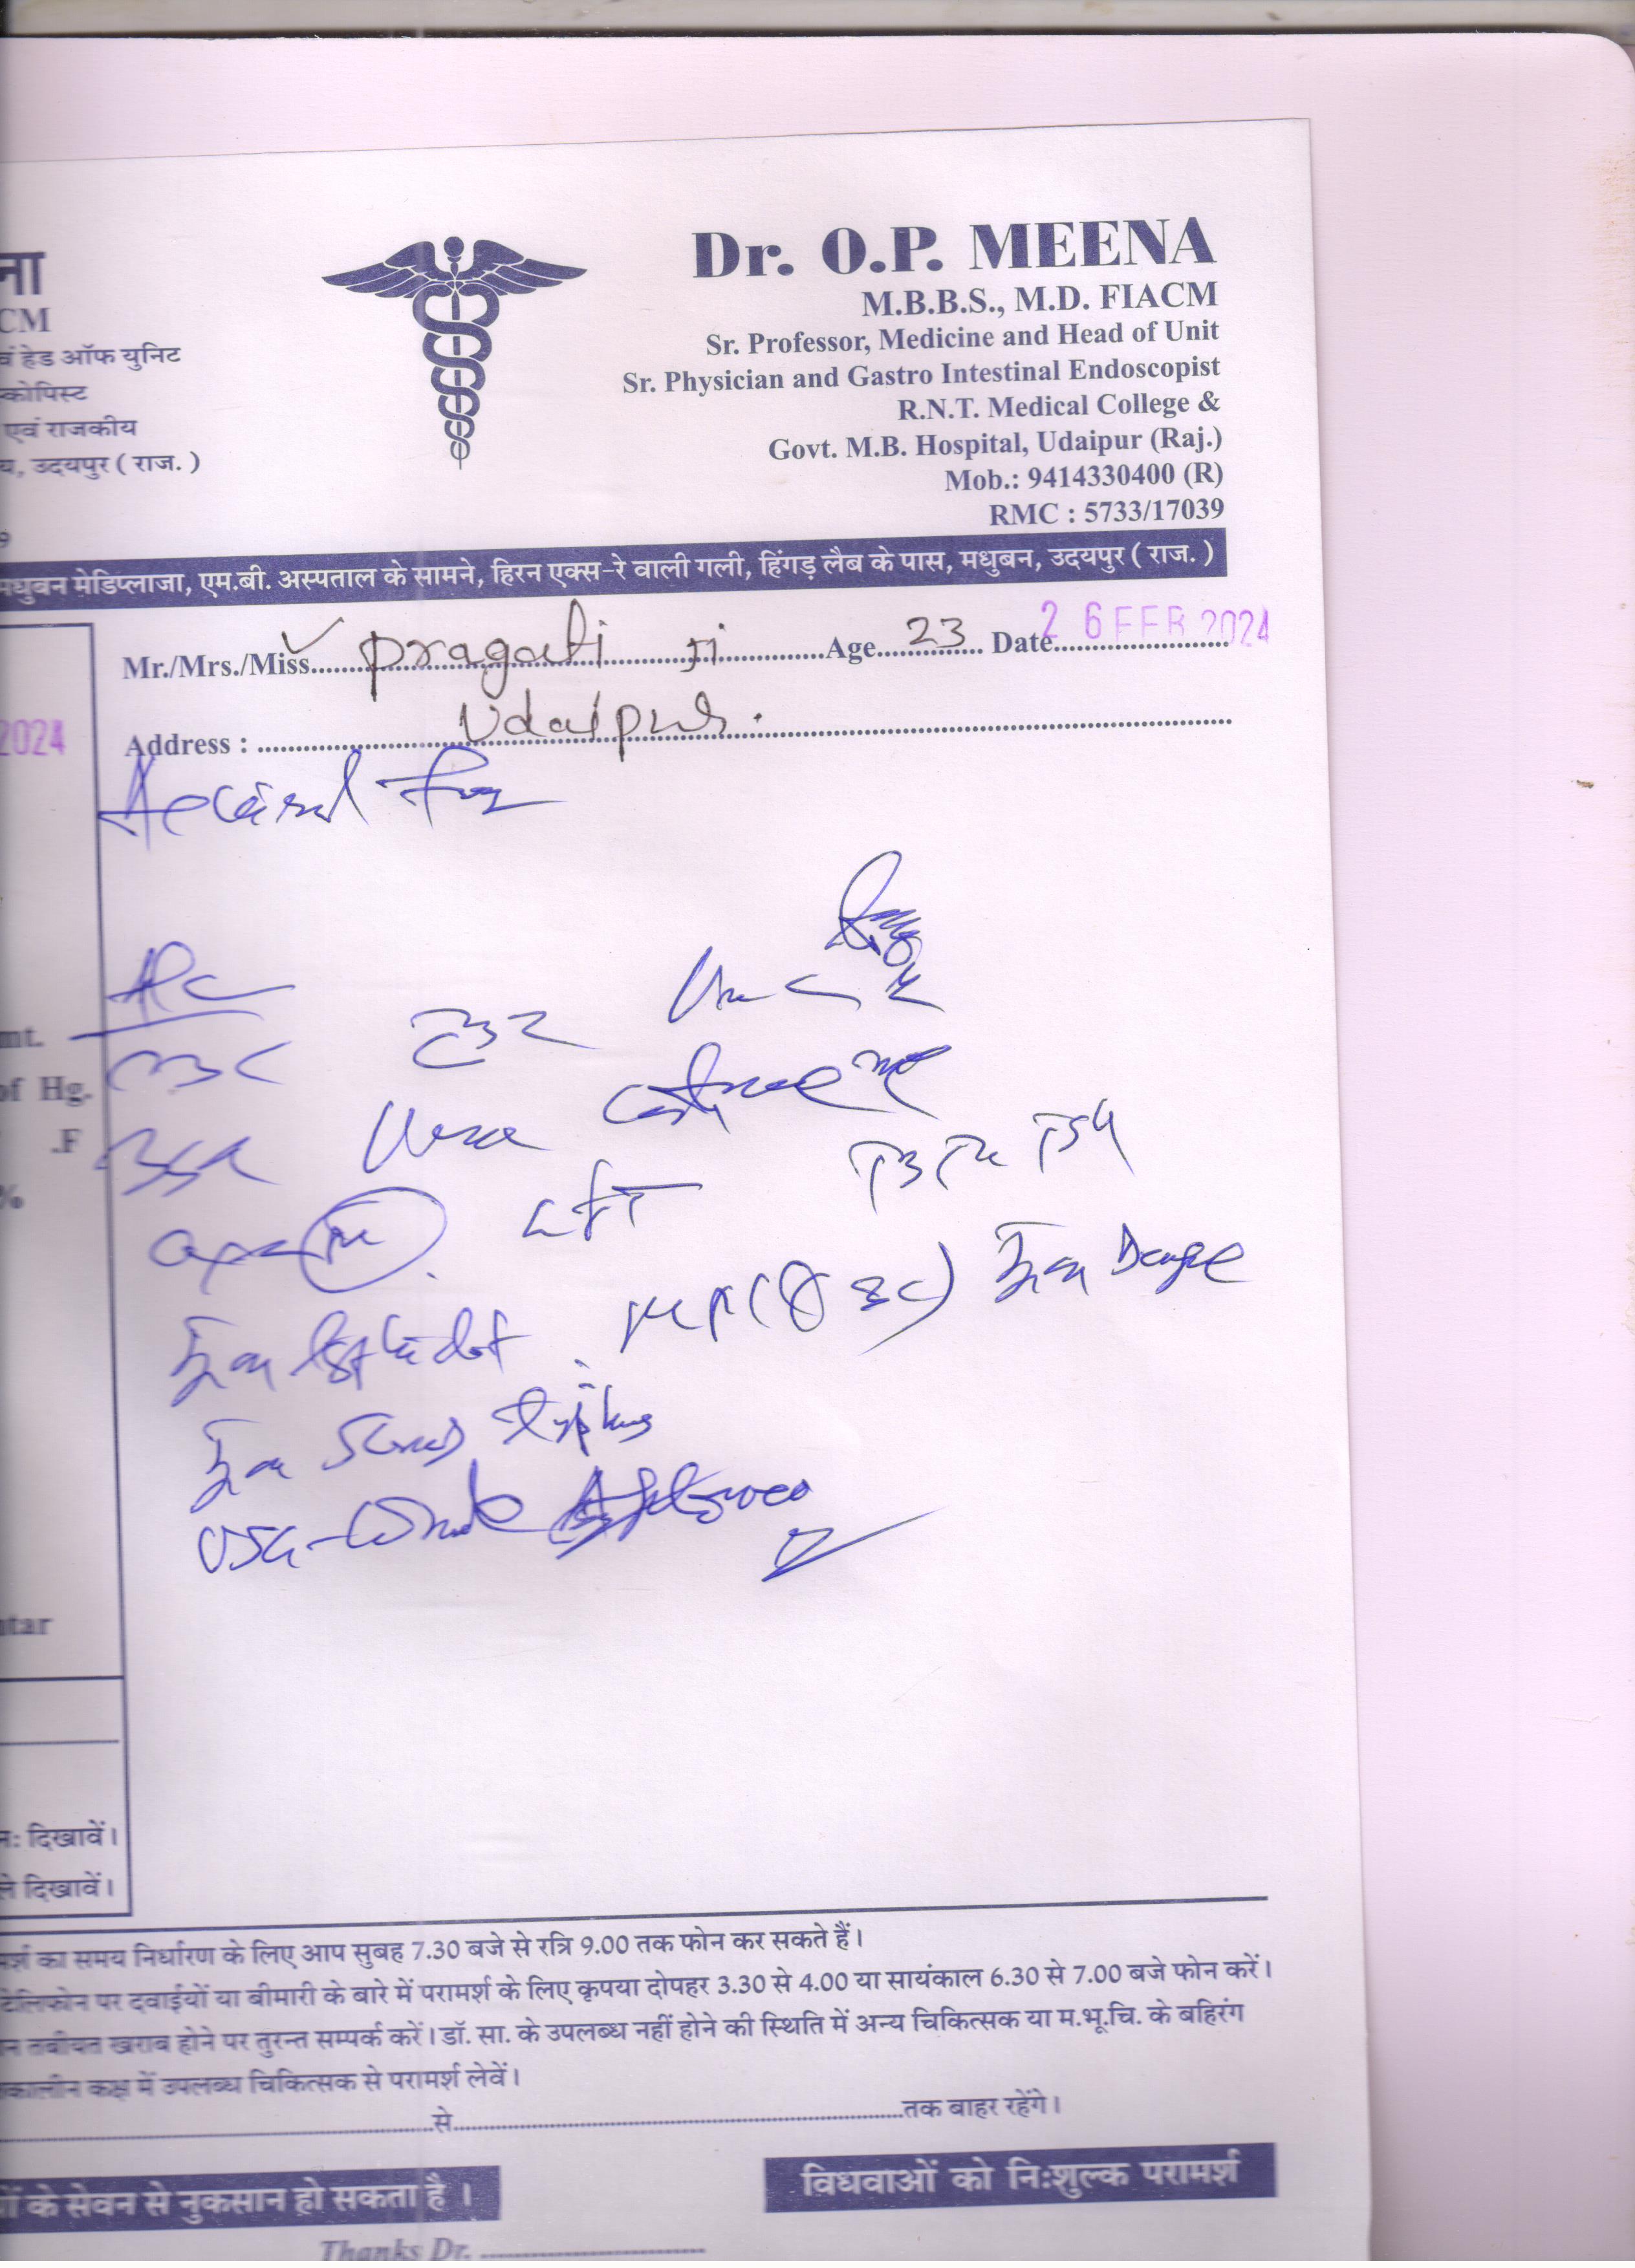 ना
CM
वं हेड ऑफ युनिट
स्कोपिस्ट
एवं राजकीय
य, उदयपुर ( राज. )
9
Dr. O.P. MEENA
M.B.B.S., M.D. FIACM
Sr. Professor, Medicine and Head of Unit
Sr. Physician and Gastro Intestinal Endoscopist
R.N.T. Medical College &
Govt. M.B. Hospital, Udaipur (Raj.)
Mob.: 9414330400 (R)
RMC : 5733/17039
मधुबन मेडिप्लाजा, एम.बी. अस्पताल के सामने, हिरन एक्स-रे वाली गली, हिंगड़ लैब के पास, मधुबन, उदयपुर ( राज. )
Mr./Mrs./Miss. Pragati ji Age 23 Date 26 FEB 2024
Address : Udaipur.
2024
mt.
of Hg.
.F
%
CBC
Urea
LFT T3 T4 TSH
Dengue
Scrub Typhus
USG - Whole
ntar
नः दिखावें।
ले दिखावें।
मर्श का समय निर्धारण के लिए आप सुबह 7.30 बजे से रत्रि 9.00 तक फोन कर सकते हैं।
टेलिफोन पर दवाईयों या बीमारी के बारे में परामर्श के लिए कृपया दोपहर 3.30 से 4.00 या सायंकाल 6.30 से 7.00 बजे फोन करें।
न तबीयत खराब होने पर तुरन्त सम्पर्क करें। डॉ. सा. के उपलब्ध नहीं होने की स्थिति में अन्य चिकित्सक या म.भू.चि. के बहिरंग
कालीन कक्ष में उपलब्ध चिकित्सक से परामर्श लेवें।
से तक बाहर रहेंगे।
ों के सेवन से नुकसान हो सकता है।
विधवाओं को निःशुल्क परामर्श
Thanks Dr.